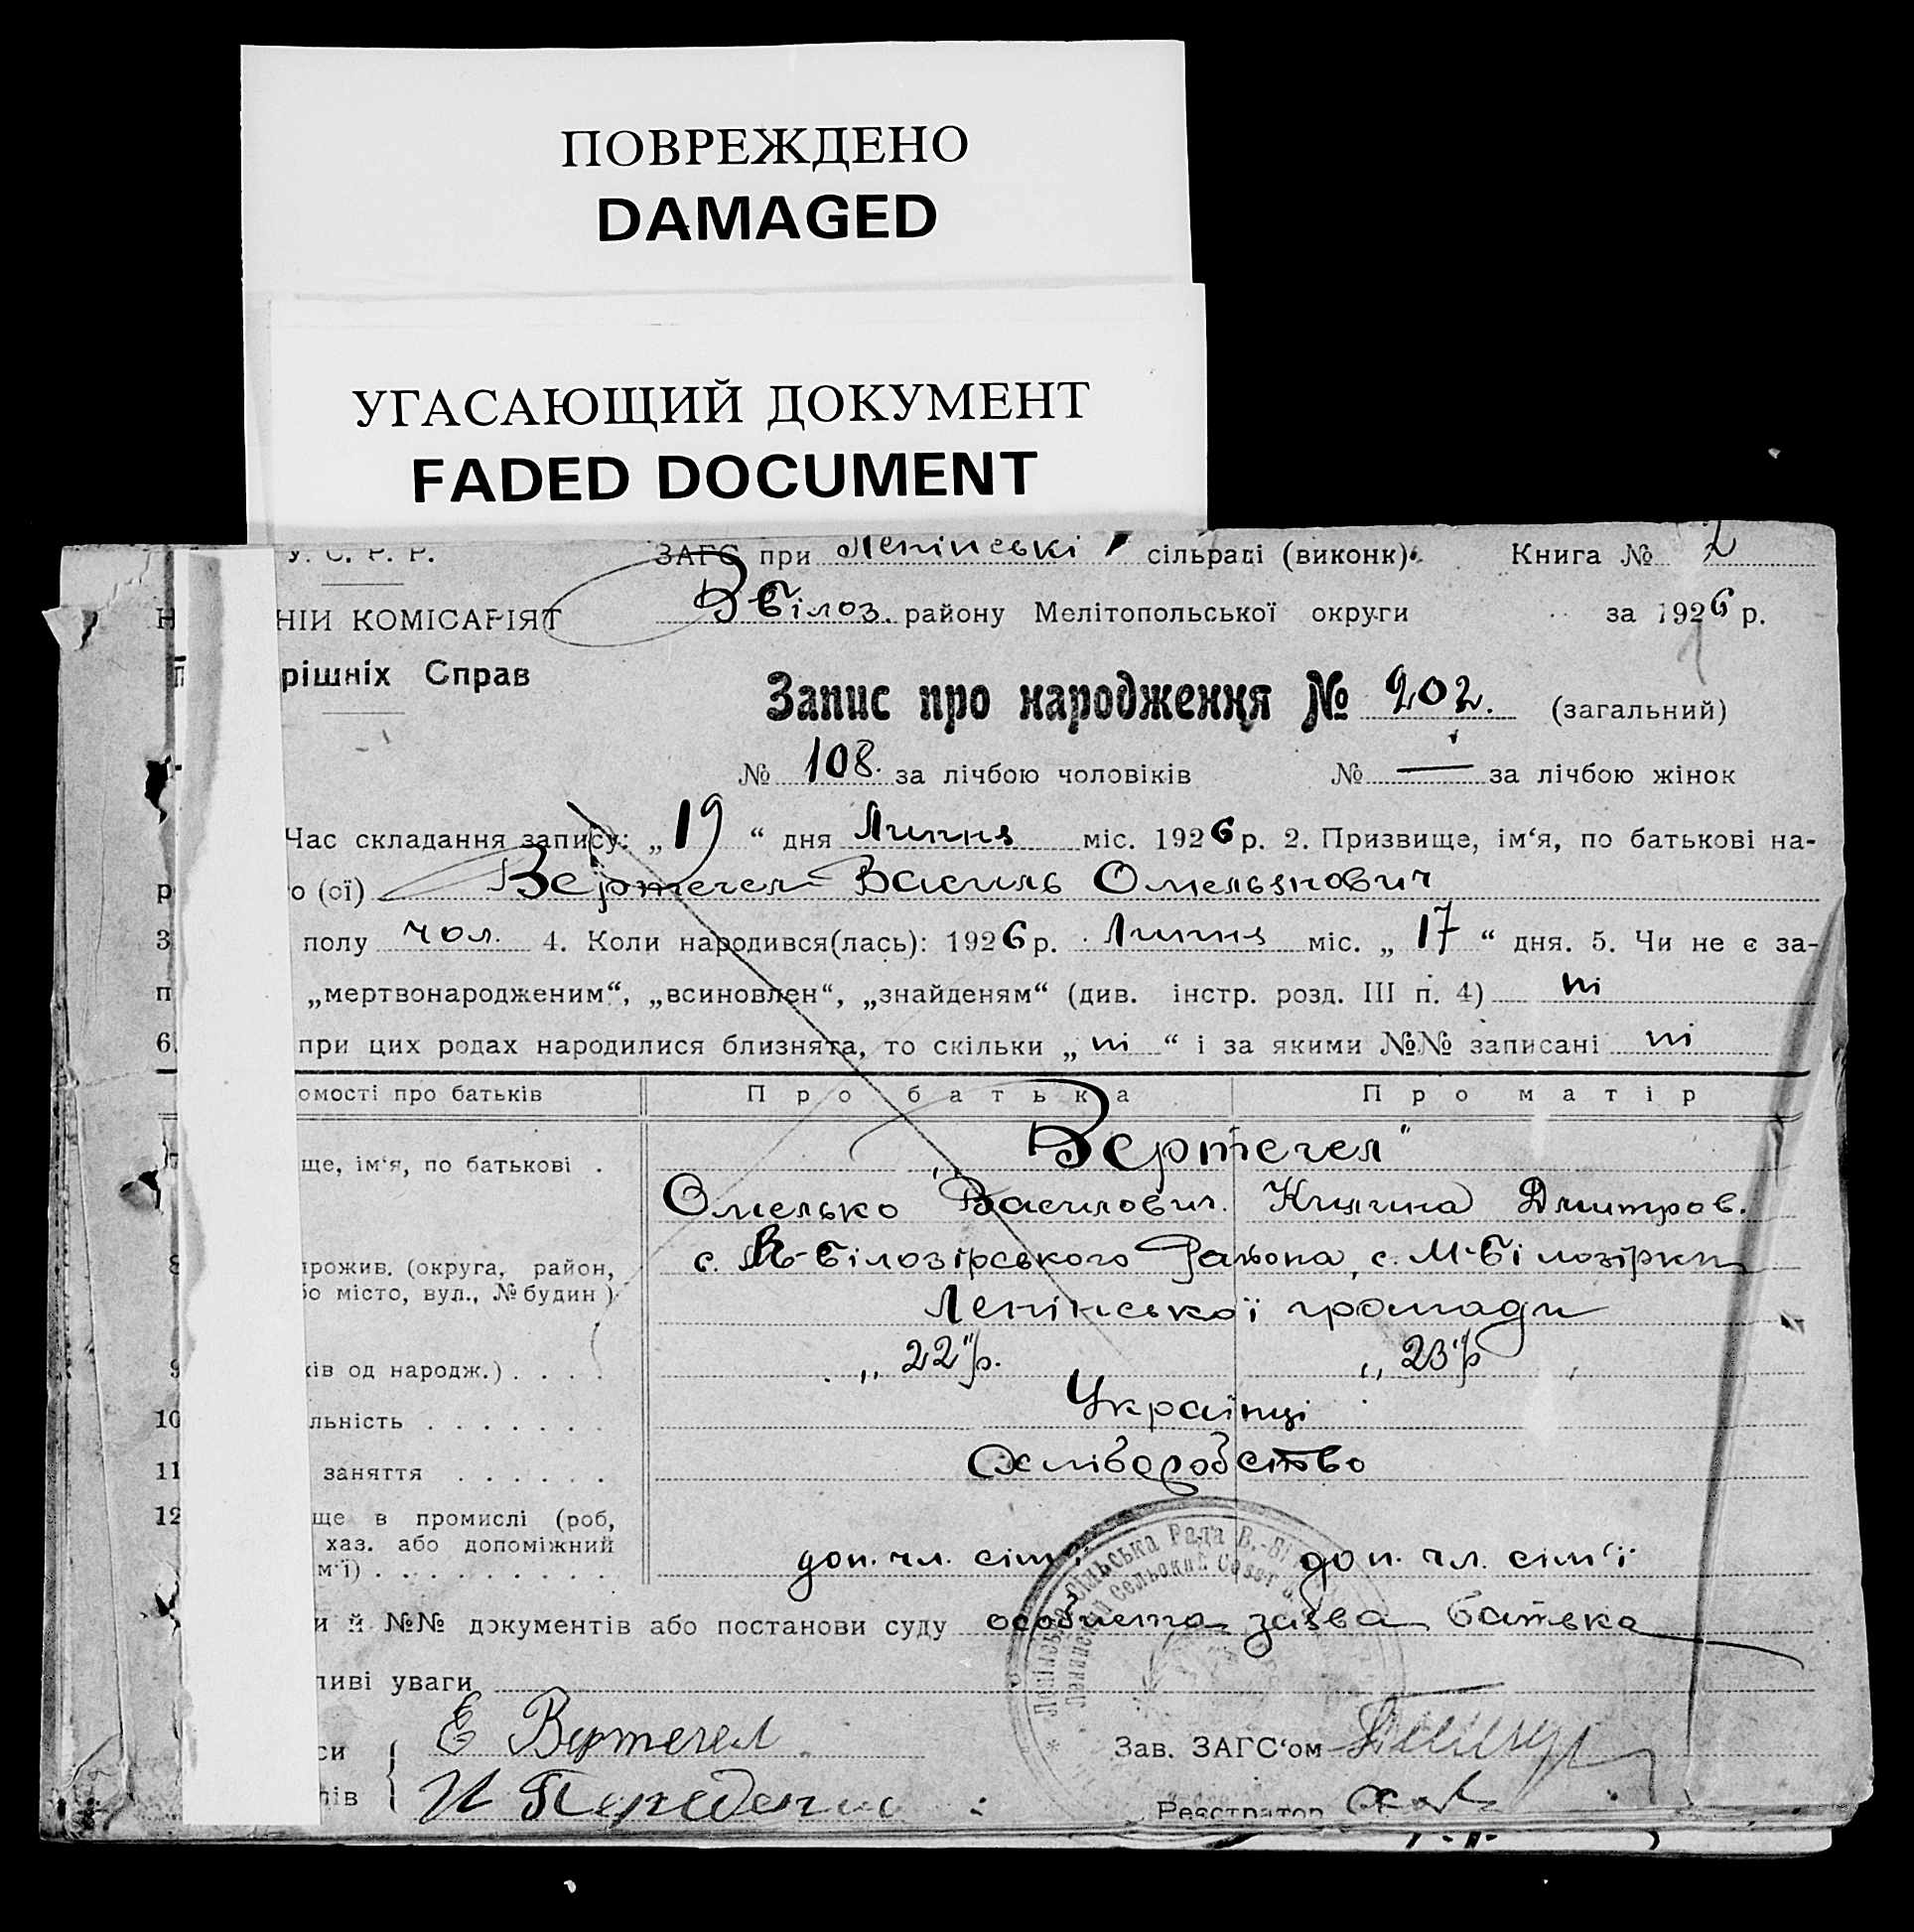 ПОВРЕЖДЕНО
DAMAGED
УГАСАЮЩИЙ ДОКУМЕНТ
FADED DOCUMENT
У. С. Р. Р. ЗАГС при Ленінські сільраді (виконк). Книга № 2
НІЙ КОМІСАРІЯТ В Білоз. району Мелітопольської округи за 1926 р.
рішніх Справ
Запис про народження № 202. (загальний)
№ 108. за лічбою чоловіків № — за лічбою жінок
Час складання запису: „19“ дня Липня міс. 1926 р. 2. Призвище, ім‘я, по батькові на-
р о (ої) Вертегел Василь Омельянович
3 полу чол. 4. Коли народився(лась): 1926 р. Липня міс. „17“ дня. 5. Чи не є за-
п „мертвонародженим“, „всиновлен“, „знайденям“ (див. інстр. розд. III п. 4) ні
6. при цих родах народилися близнята, то скільки „ні“ і за якими №№ записані ні
омості про батьків Про батька Про матір
ще, ім‘я, по батькові . „Вертегел“
Омелько Василович. Килина Дмитров.
8 прожив. (округа, район, с. В-Білозірського Района, с. М-Білозірки
бо місто, вул., № будин) Ленінської громади
9 ків од народж.) . . . . „22“ р. „23“ р
10 льність . . . . . . . Українці
11 заняття . . . . . . Хліборобство
12 ще в промислі (роб,
хаз. або допоміжний
м‘ї) . . . . . . . . . . доп. чл. сім‘ї доп. чл. сім‘ї
Ленінська Сільська Рада В.-Бі
Ленинский Сельский Совет
и й №№ документів або постанови суду особиста заява батька
ливі уваги
си Е Вертегел Зав. ЗАГС‘ом
лів И Реєстратор